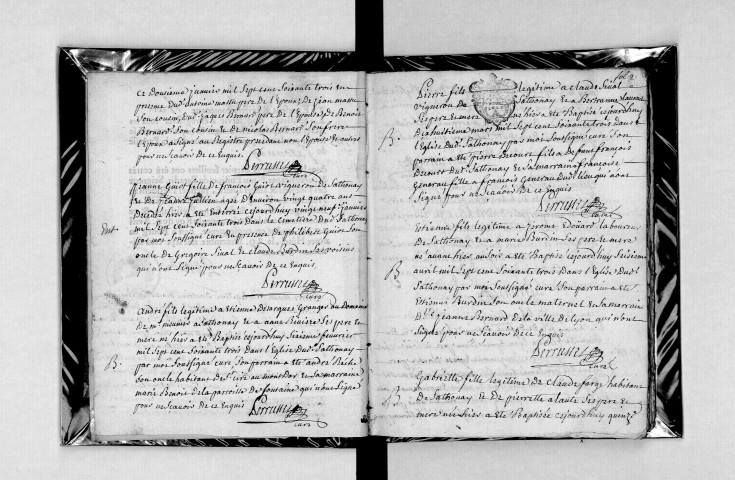 ce Douzieme janvier mil Sept cent Soixante trois en
presence Dud. antoine mattu pere de l'epoux De jean mattu
Son cousin, Dud. jaques Bernard pere de l'epouse, de Benoit
Bernard Son cousin & de nicolas Bernard Son frere
l'epoux a Signé au Registre pnt non l'epouse & autres
pour ne Scavoir De ce Enquis
Perrusset
curé
Ent.
jeanne Guiot fille De francois Guiot vigneron De Sathonay
& De jeanne Gullion agée D'environ vingt quatre ans
Decedée hier a eté Enterrée cejourdhuy vingt neuf janvier
mil Sept cent Soixante trois Dans le Cemetiere Dud. Sathonay
par moy Soussigné curé En presence de philibert Guiot Son
oncle De Gregoire Sival & claude Burdin Ses voisins
qui n'ont Signé pour ne Scavoir De ce Enquis
Perrusset
curé
andré fils legitime a Etienne Desarques Granger au Domaine
De mr. meunier a Sathonay & a anne Riviere Ses pere &
mere né hier a eté Baptisé cejourdhuy Sixieme feuvrier
mil Sept cent Soixante trois Dans l'Eglise Dud. Sathonay
B.
par moy Soussigné curé Son parrain a eté andré
Son oncle habitant De St. cire au mont D'or & Sa marraine
marie Benoit De la parroisse De fontaine qui n'ont Signé
pour ne Scavoir De ce Enquis
Perrusset
curé
fol. 2
Pierre fils legitime a claude Sival
vigneron De Sathonay & a Laurent
Ses pere & mere né hier a eté Baptisé cejourdhuy
Dixhuitieme mars mil Sept cent Soixante trois Dans
B.
l'Eglise Dud. Sathonay par moi Soussigné curé Son
parrain a eté pierre Decourt fils a De funt françois
Decourt Dud. Sathonay & Sa marraine françoise
Generau fille a françois Generau Dud. lieu qui n'ont
Signé pour ne Scavoir De ce Enquis
Perrusset
curé
Etienne fils legitime a jerome Edouard laboureur
De Sathonay & a marie Burdin Ses pere & mere
né avant hier au Soir a eté Baptisé cejourdhuy Sixieme
B.
avril mil Sept cent Soixante trois Dans l'Eglise Dud.
Sathonay par moy Soussigné curé Son parrain a eté
Etienne Burdin Son oncle maternel & Sa marraine
Dlle. jeanne Bernard De la ville de lyon qui n'ont
Signé pour ne Scavoir De ce Enquis
Perrusset
curé
Gabrielle fille legitime De claude farge habitant
B.
De Sathonay & De pierrette alaute Ses pere &
mere née hier a eté Baptisée cejourdhuy quinze